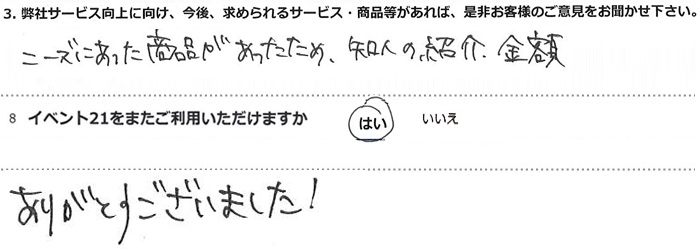 3. 弊社サービス向上に向け、今後、求められるサービス・商品等があれば、是非お客様のご意見をお聞かせ下さい。
ニーズにあった商品があったため、知人の紹介、金額
8 イベント21をまたご利用いただけますか はい いいえ
ありがとうございました!